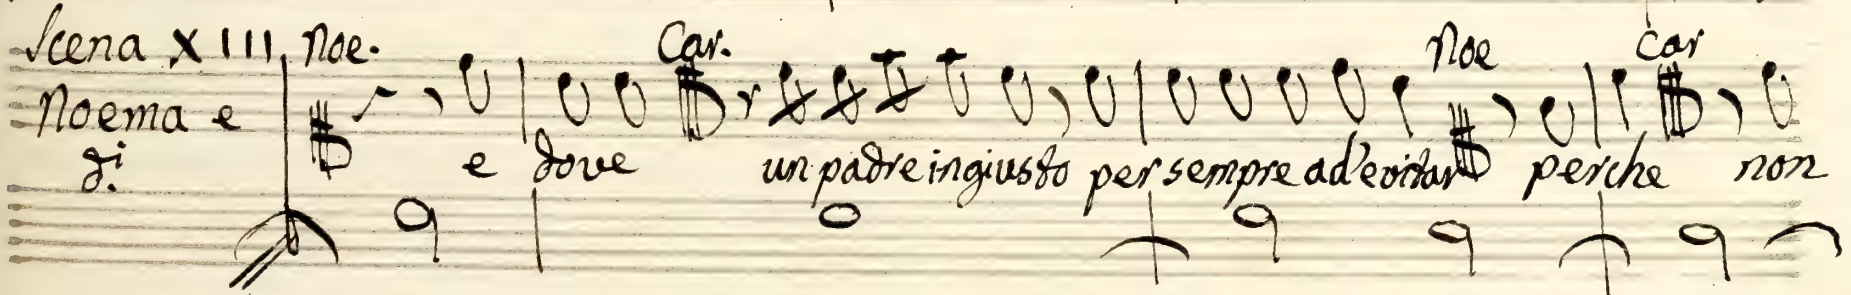 Scena XIII Noe. Car. Noe Car
Noema e
di. e dove un padre ingiusto per sempre ad'evitar perche non